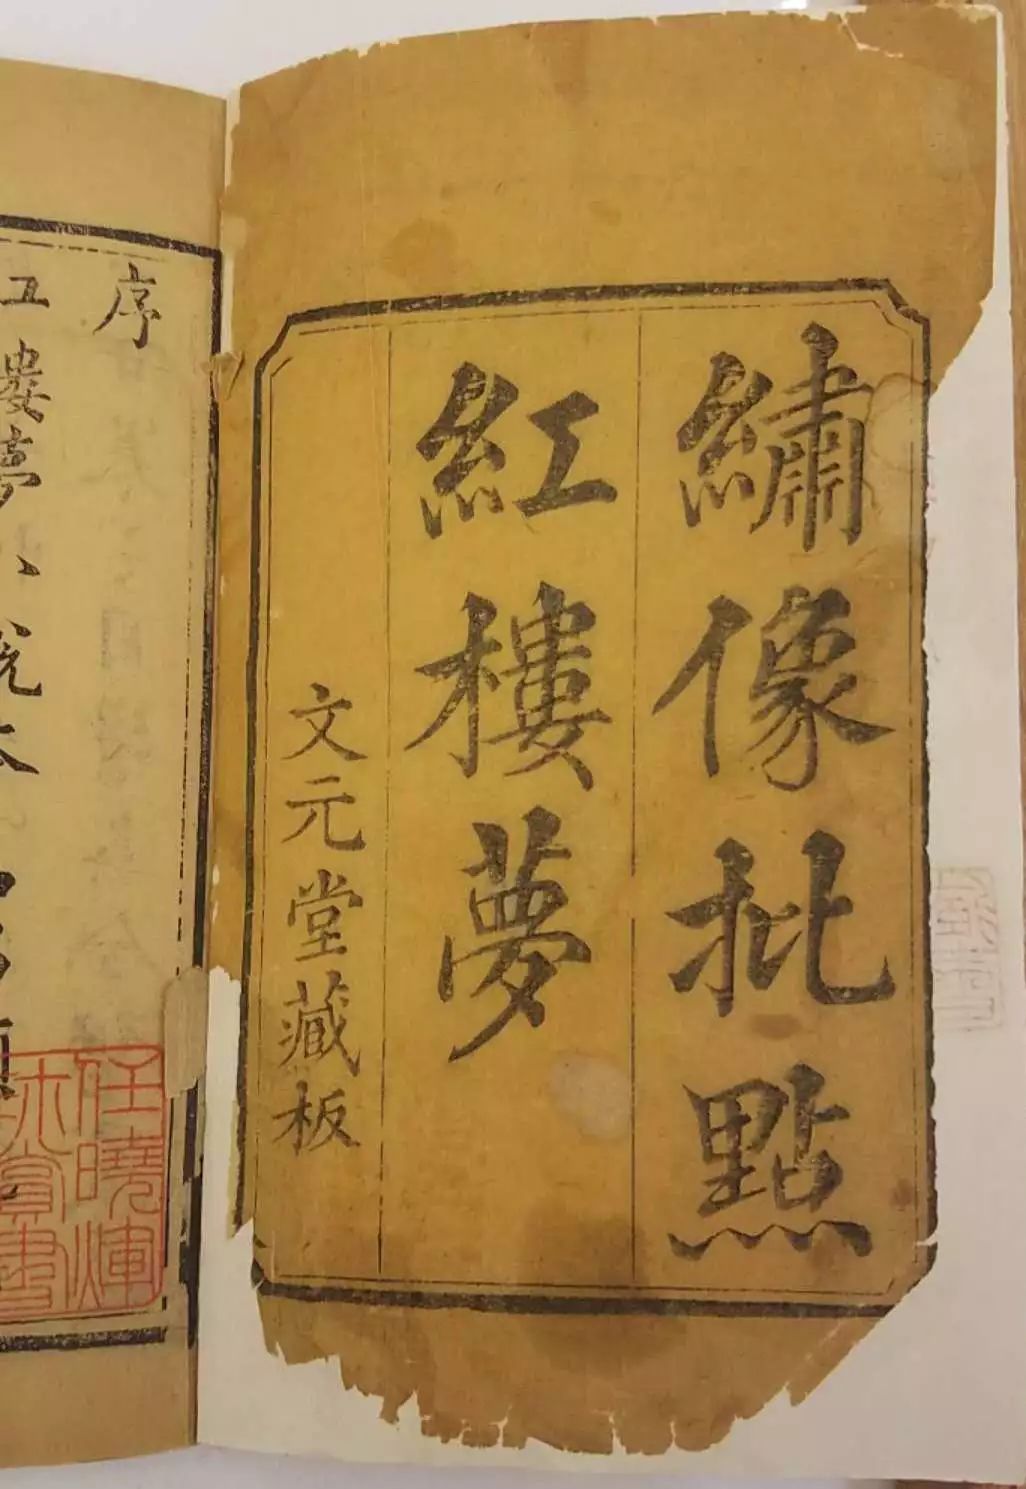 繡像批點
紅樓夢
文元堂藏板
序
樓夢小說本
任曉煇